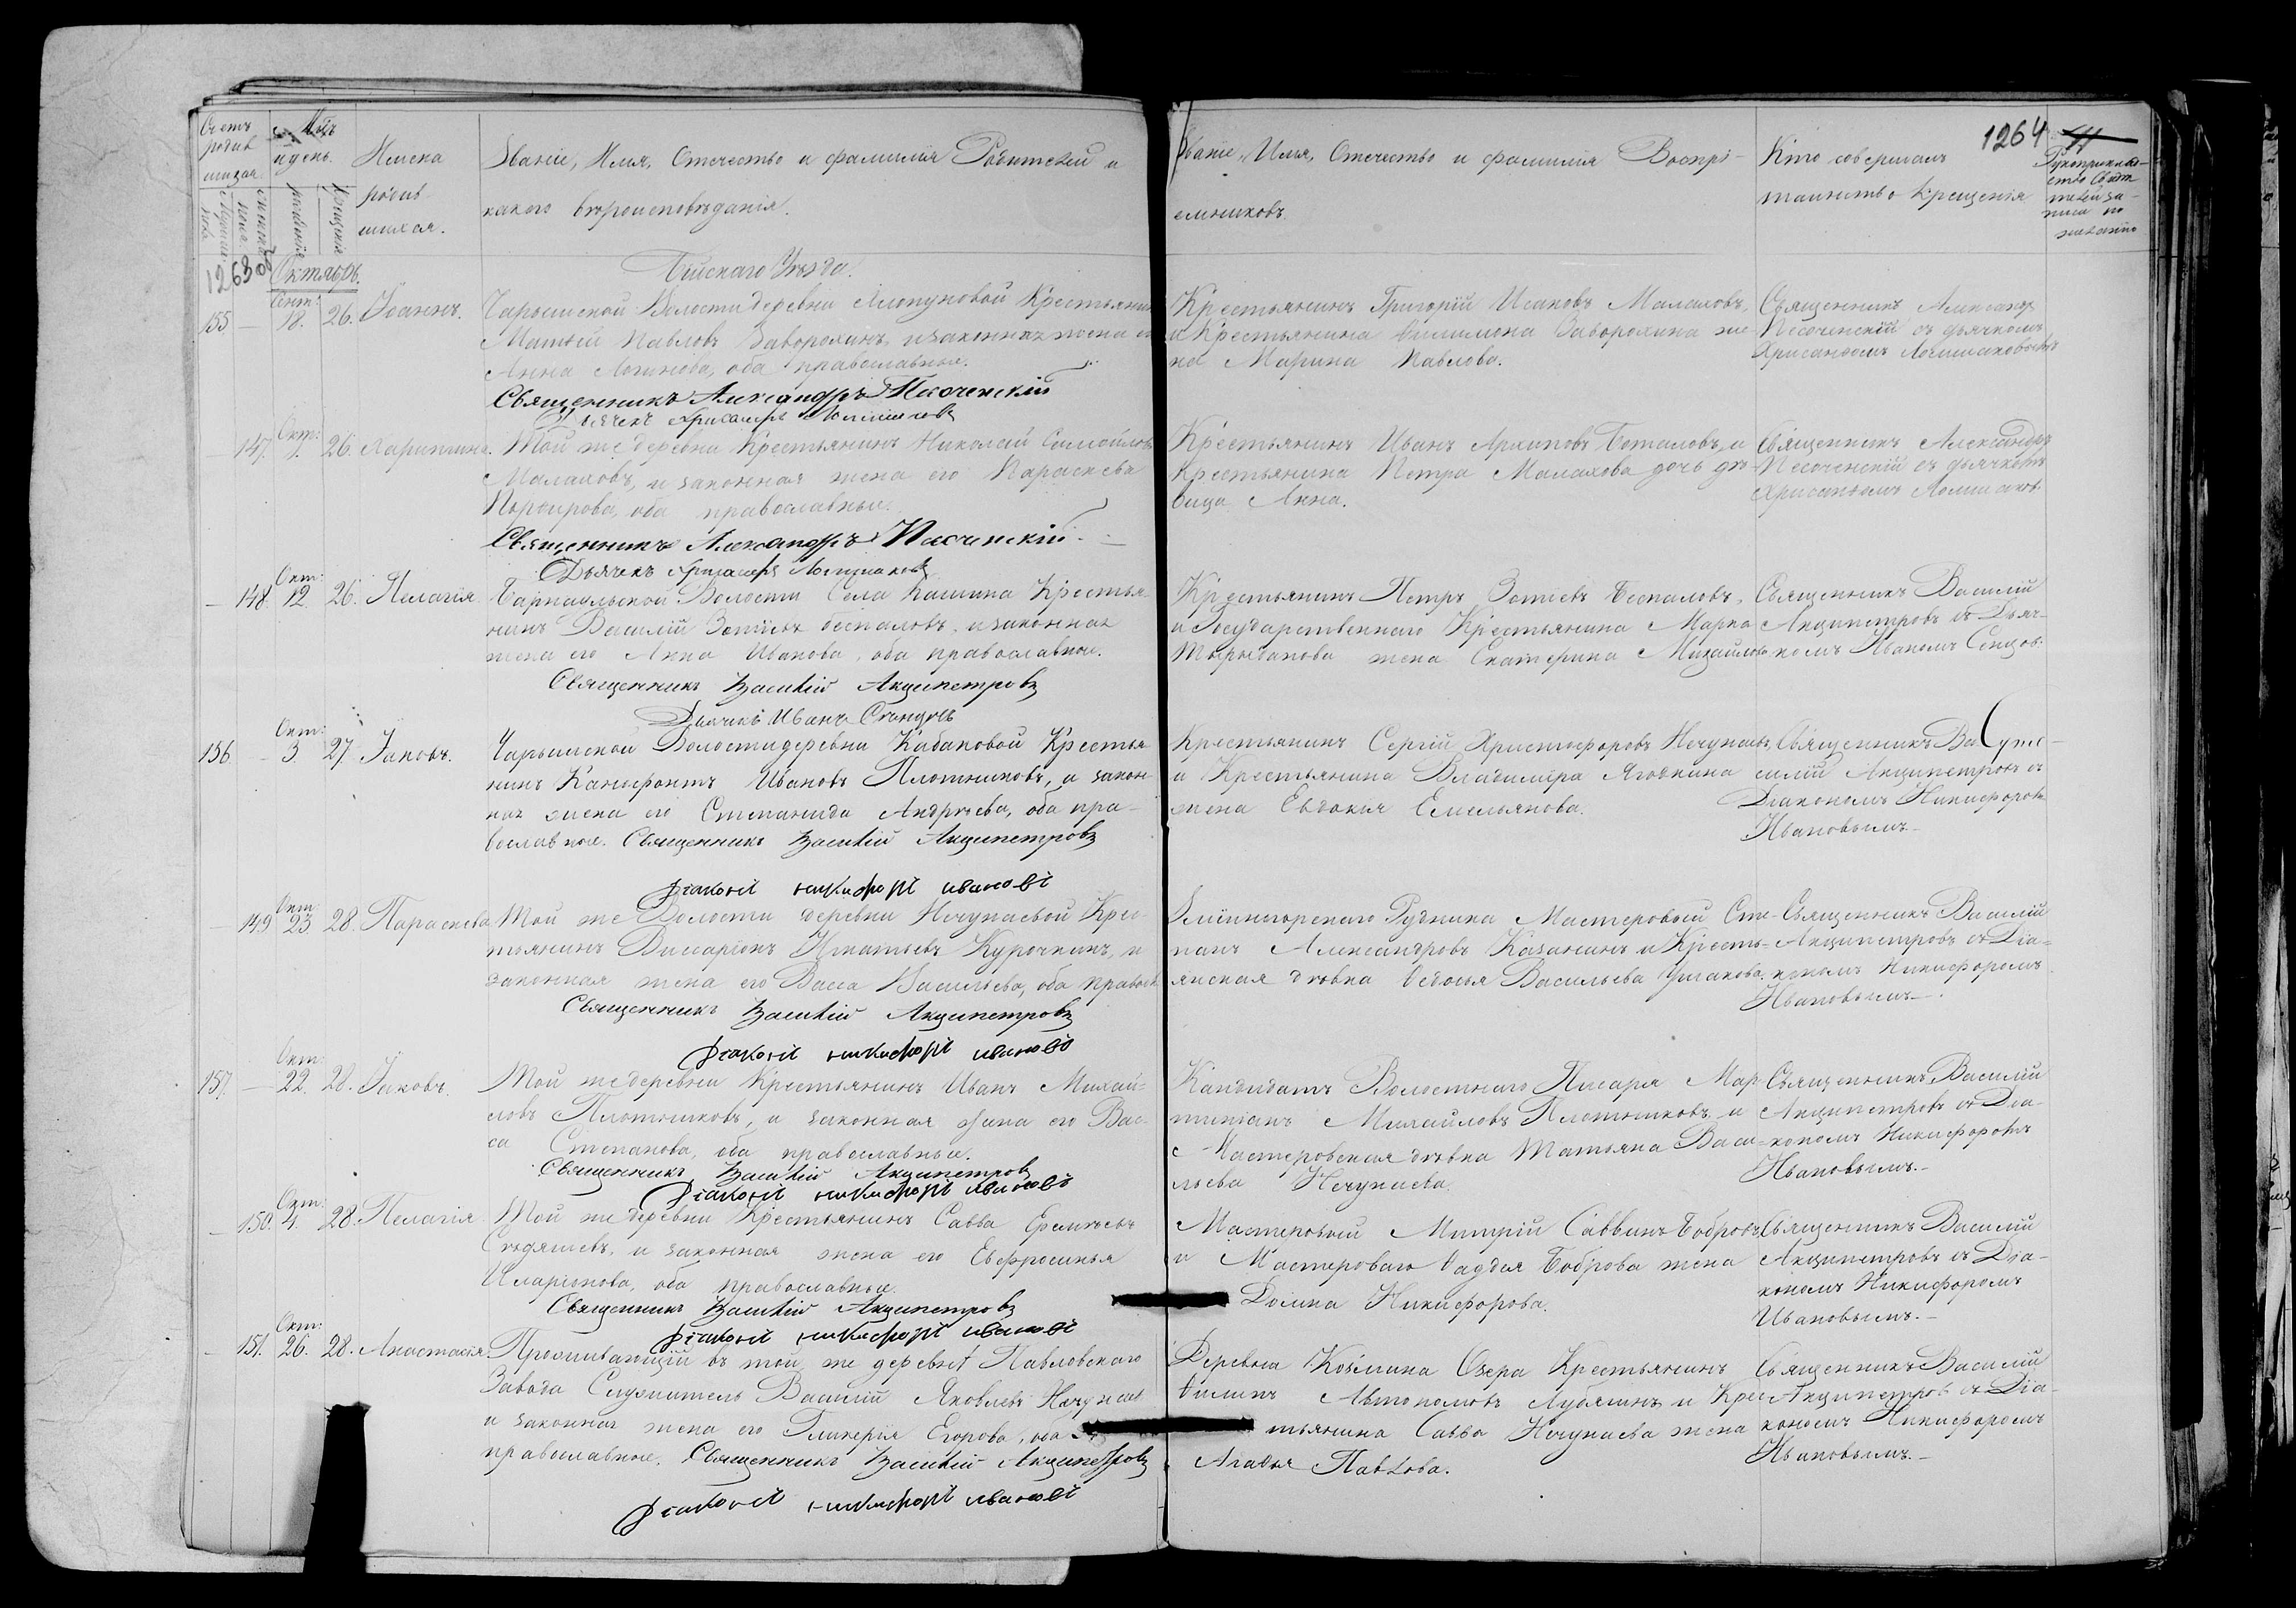 Счетъ родив шихся
Мѣс. и день.
Имена родив шихся.
Званіе, Имя, Отечество и фамилія Родителей и
какого вѣроисповѣданія.
Званіе, Имя, Отечество и фамилія Воспрі-
емниковъ
Кто совершалъ
таинство Крещенія
1264
1263 об
Октябрь.
Бійскаго Уѣзда.
155 — Сент: 18. 26. Іоаннъ.
Чарышской Волости деревни Крестьянин
Матвѣй Павловъ Заворохинъ, и законная жена е
Анна Логинова, оба православные.
Священникъ Александръ Песоченскій
Крестьянинъ Григорій Исаковъ Малаховъ,
и Крестьянина Филимона Заворохина же
на Марина Павлова.
Священникъ Александръ
Песоченскій съ дьячкомъ
— 147. Окт: 26.
Той же деревни Крестьянинъ Николай Самойловъ
Малаховъ, и законная жена его Параскева
Порфирова, оба православные.
Священникъ Александръ Песоченскій
Крестьянинъ Иванъ Архиповъ и
Крестьянина Петра Малахова дочь дѣ-
вица Анна.
Священникъ Александръ
Песоченскій съ дьячкомъ
— 148. Окт: 12. 26. Пелагія
Барнаульской Волости Села Кашина Крестья
нинъ Василій Зотіевъ Беспаловъ, и законная
жена его Анна Иванова, оба православные.
Священникъ Василій Акципетровъ
Дьячекъ Иванъ
Крестьянинъ Петръ Зотіевъ Беспаловъ,
и Государственнаго Крестьянина Марка
жена Екатерина Михайлова
Священникъ Василій
Акципетровъ съ Дьяч-
комъ Иваномъ
156. — Окт: 3. 27. Іаковъ.
Чарышской Волости деревни Кабановой Крестья
нинъ Ксенофонтъ Ивановъ Плотниковъ, и закон
ная жена его Степанида Андреева, оба пра-
вославные. Священникъ Василій Акципетровъ
Діаконъ Никифоръ Ивановъ
Крестьянинъ Сергій Христофоровъ Нечунаевъ,
и Крестьянина Владиміра Ягодкина
жена Евдокія Емельянова.
Священникъ Ва
силій Акципетровъ съ
Діакономъ Никифоромъ
Ивановымъ.
— 149. Окт 23 28. Параскева
Той же Волости деревни Нечунаевой Крес-
тьянинъ Виссаріонъ Игнатьевъ Курочкинъ, и
законная жена его Васса Васильева, оба правосл
Священникъ Василій Акципетровъ
Діаконъ Никифоръ Ивановъ
Змѣиногорскаго Рудника Мастеровой Сте-
панъ Александровъ Казанинъ и Кресть-
янская дѣвка Федосья Васильева Ушакова
Священникъ Василій
Акципетровъ съ Діа-
кономъ Никифоромъ
Ивановымъ.
157. — Окт 22. 28. Іаковъ.
Той же деревни Крестьянинъ Иванъ Михай-
ловъ Плотниковъ, и законная жена его Вас-
са Степанова, оба православные.
Священникъ Василій Акципетровъ
Діаконъ Никифоръ Ивановъ
Кандидатъ Волостнаго Писаря Мар
тиніанъ Михайловъ Плотниковъ и
Мастеровская дѣвка Татьяна Васи-
льева Нечунаева.
Священникъ Василій
Акципетровъ съ Діа-
кономъ Никифоромъ
Ивановымъ.
— 150. Окт: 4. 28. Пелагія
Той же деревни Крестьянинъ Савва
и законная жена его Евфросинья
Иларіонова, оба православные.
Священникъ Василій Акципетровъ
Діаконъ Никифоръ Ивановъ
Мастеровой Митрій Саввинъ Бобровъ
и Мастероваго Фаддея Боброва жена
Домна Никифорова.
Священникъ Василій
Акципетровъ съ Діа-
кономъ Никифоромъ
Ивановымъ.
— 151. Окт: 26. 28. Анастасія.
Проживающій въ той же деревнѣ Павловскаго
Завода Служитель Василій Яковлевъ Нечунаев
и законная жена его Гликерія Егорова, оба
православные. Священникъ Василій Акципетровъ
Діаконъ Никифоръ Ивановъ
Деревни Козмина Озера Крестьянинъ
Филипъ Автономовъ и Крес
тьянина Савва Нечунаева жена
Агафья Павлова.
Священникъ Василій
Акципетровъ съ Діа-
кономъ Никифоромъ
Ивановымъ.